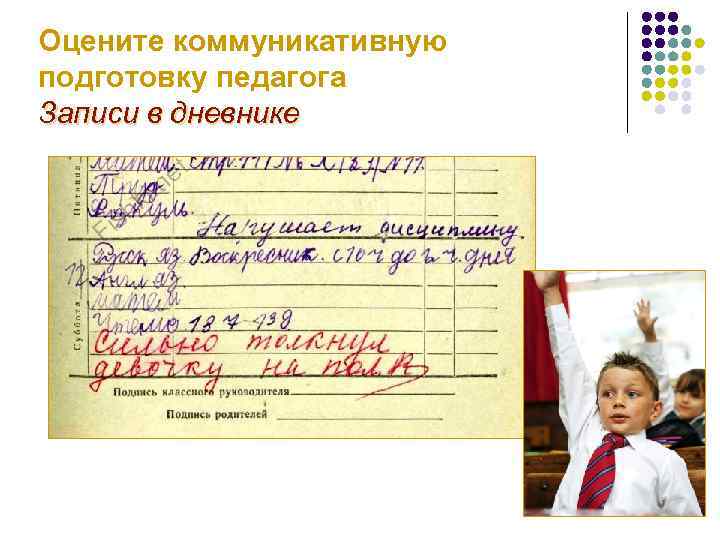 Оцените коммуникативную
подготовку педагога
Записи в дневнике
Пятница
Труд
Физкуль.
Нарушает дисциплину
Суббота
12
Русск яз. Воскресник. с 10ч до 2ч. дня
Англ яз.
матем
Чтение 137-138
Сильно толкнул
девочку на пол
Подпись классного руководителя
Подпись родителей